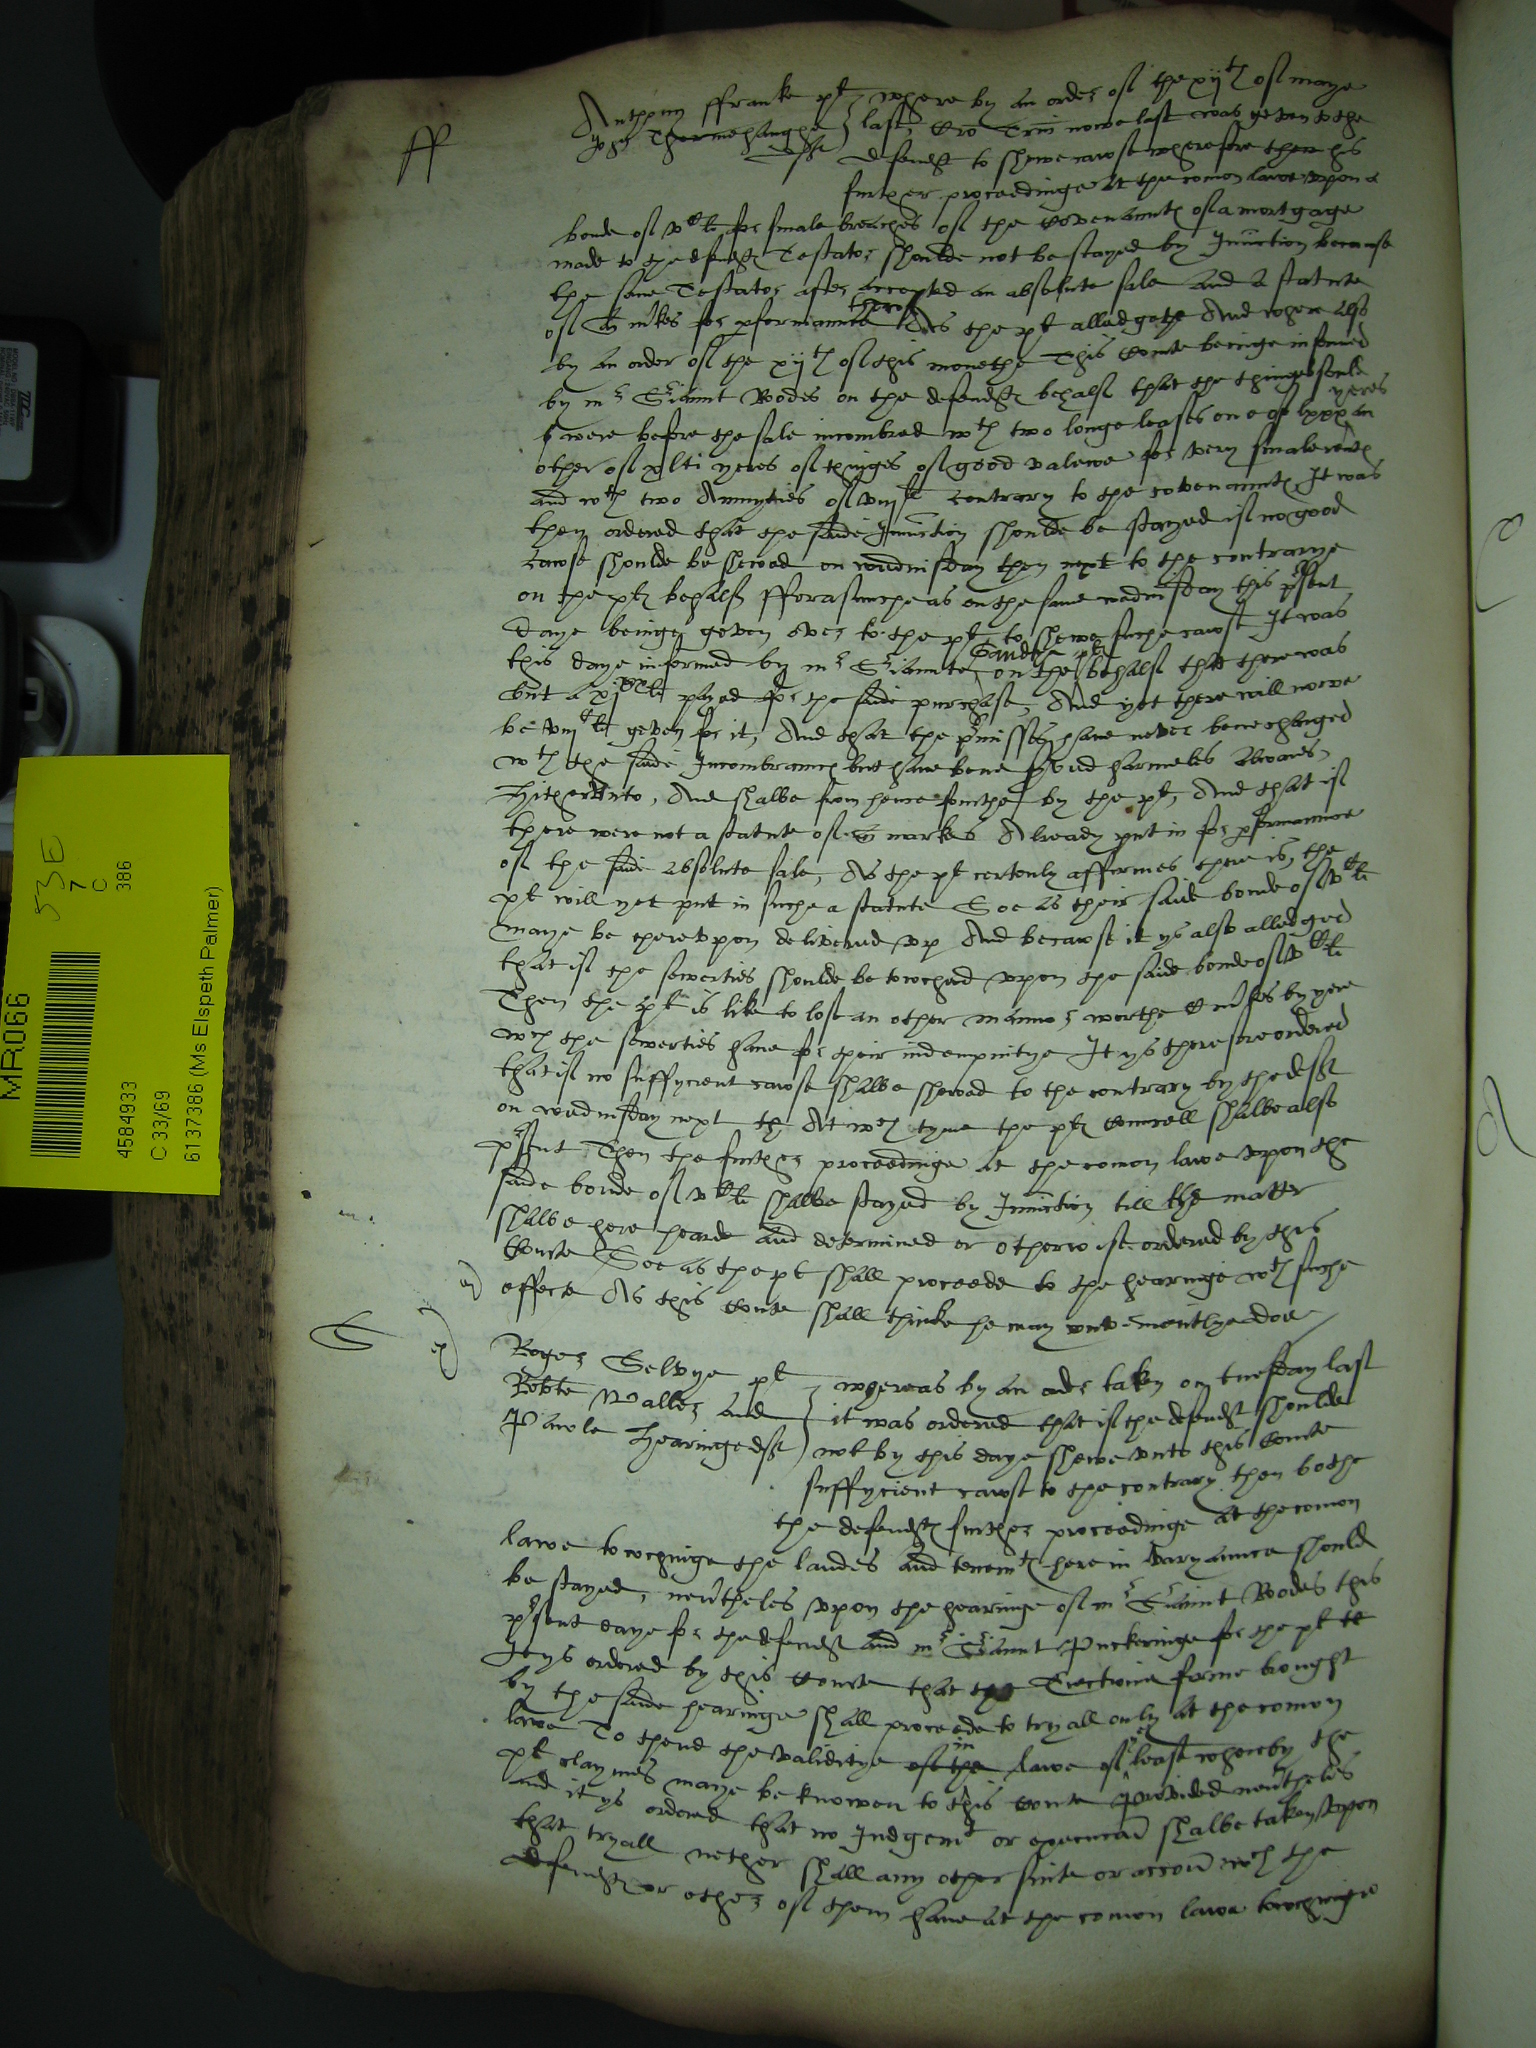 ff
Anthony ffranke plt where by an order of the xijth of maye
John Thormehanghe last, Cro Trin nowe last was geven to the
deft defendt to shewe cawse wherefore then his
further proceedinge at the comon lawe vpon a
bonde of vCli for smale breaches of the Covenaunts of a mortgage
made to the defendts Testator shoulde not be stayed by Iniunction because
the same Testator after accepted an absolute sale And a statute
of mrkes for performaunce thereof As the plt alledgeth And where also
by an order of the xijth of this monethe This Courte beinge informed
by mr Seriaunt Rodes on the defendts behalf that the thinges soulde
were before the sale incombred wth two longe leases one of lxxx yeres an
other of xlti yeres of thinges of good valewe for very smale rents
and wth two Annyties of viijli contrary to the covenaunts It was
then ordered that the saide Iniunction shoulde be stayed if no good
cawse shoulde be shewed on wednisday then next to the contrarye
on the plts behalf fforasmuche as on the same wednisday this present
daye beinge geven over to the plt to shewe suche cawse It was
this daye informed by mr Seriaunte Gaudye on the plts behalf that there was
but xijCli payed for the saide purchase, And yet there will nowe
be viijCli geven for it, And that the premisses have never bene charged
wth the saide Incombraunces but have bene saved harmeles Alwaies
hitherunto, And shalbe from hence fourthe by the plt, And that if
there were not a statute of markes Already put in for performaunce
of the saide absolute sale, As the plt certenly affirmes there is, the
plt will yet put in suche a statute Soe as their saide bonde of vCli
maye be therevpon delivered vp And because it ys also alledged
that if the sewerties shoulde be towched vpon the saide bonde of vCli
Then the plt is like to lose an other mannor worthe C mrkes by yere
wch the sewerties have for their indempnitye It ys therefore ordered
that if no suffycient cawse shalbe shewed to the contrary by the deft
on wednisday next At wch tyme the plts Councell shalbe also
present Then the further proceedinge at the comon lawe vpon the
saide bonde of vCli shalbe stayed by Iniunction till the matter
shalbe here hearde and determined or otherwise ordered by this
Courte Soe as the plt shall proceede to the hearinge wth suche
effecte As this Courte shall thinke he may convenientlye doe
G
Roger Selbye plt whereas by an order taken on tuesday last
Robte Waller and it was ordered that if the defendt shoulde
Pawle Hearinge deft not by this daye shewe vnto this Courte
suffycient cawse to the contrary, then bothe
the defendts further proceedinge at the comon
lawe towchinge the landes and tenemts here in varyaunce should
be stayed, nevertheles vpon the hearinge of mr Seriaunt Rodes this
present daye for the defendt and mr Seriaunt Puckeringe for the plt
It ys ordered by this Courte that the Eiectione firme brought
by the saide hearinge shall proceede to tryall only at the comon
lawe To thend the validitye of the in lawe of ye lease whereby the
plt claymes maye be knowen to this Courte Provided nevertheles
and it ys ordered that no Iudgemt or execucion shalbe taken vpon
that tryall nether shall any other suite or accion wch the
defendts or other of them have at the comon lawe towchinge
MR066
53D
7
C
386
4584933
C 33/69
6137386 (Ms Elspeth Palmer)